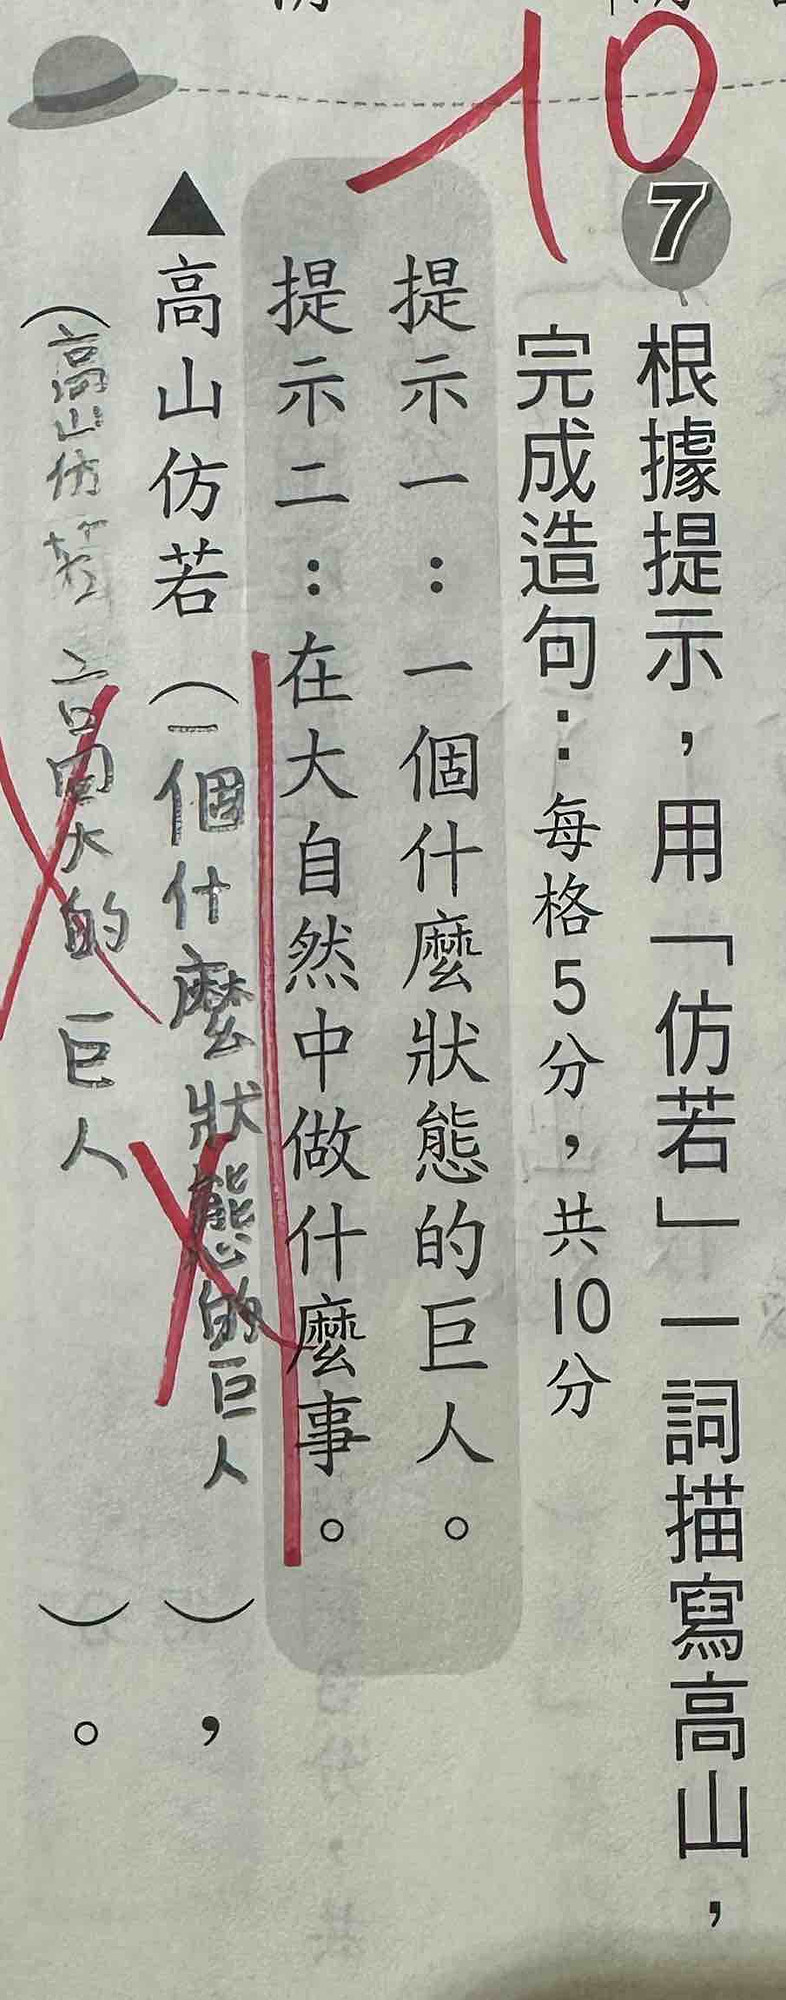 10
7 根據提示，用「仿若」一詞描寫高山，
完成造句：每格5分，共10分
提示一：一個什麼狀態的巨人。
提示二：在大自然中做什麼事。
▲高山仿若（一個什麼狀態的巨人），
（高山仿若 高大的巨人）。